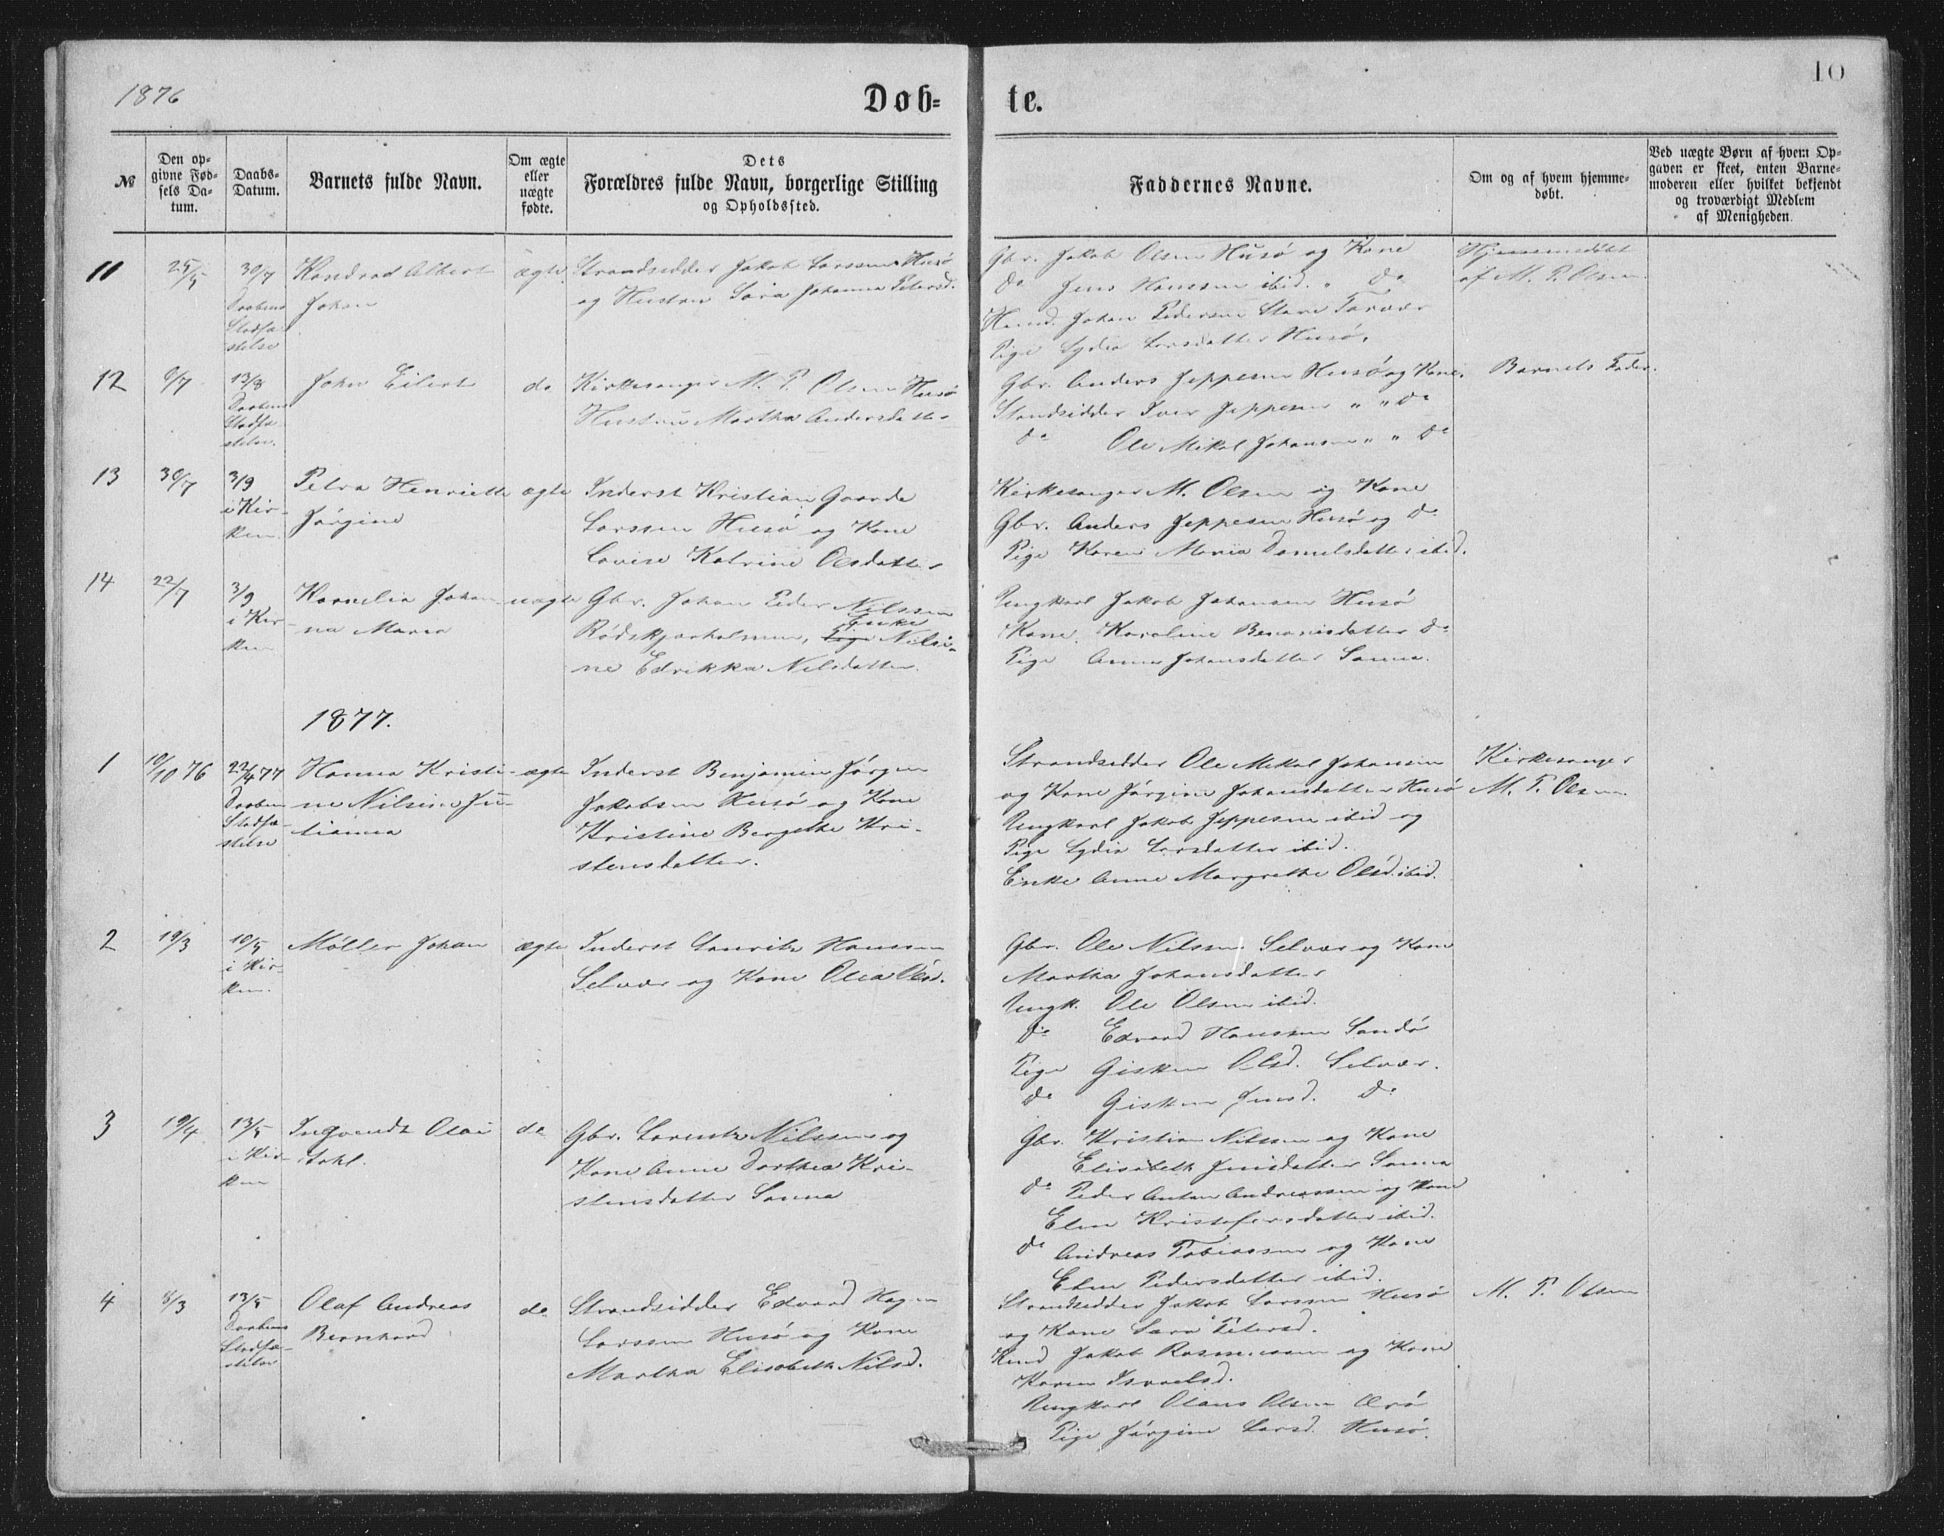 1876
Døb-
te.
10
№
Den op-
givne Fød-
sels Da-
tum.
Daabs-
Datum.
Barnets fulde Navn.
Om ægte
eller
uægte
fødte.
Dets
Forældres fulde Navn, borgerlige Stilling
og Opholdssted.
Faddernes Navne.
Om og af hvem hjemme-
døbt.
Ved uægte Børn af hvem Op-
gaven er skeet, enten Barne-
moderen eller hvilket bekjendt
og troværdigt Medlem
af Menigheden.
11
25/5
30/7
Daabens
Stadfæ-
stelse
Kondrad Albert
Johan
ægte
Strandsidder Jakob Larssen Husø
og Hustru Sara Johanna Petersd.
Gbr. Jakob Olsen Husø og Kone
Do Jens Hanssen ibid. " Do
Johan Pedersen
Pige Lydia Larsdatter Husø.
Hjemmedøbt
af M. P. Olsen
12
9/7
13/8
Daabens
Stadfæ-
stelse.
John Eilert
do
Kirkesanger M. P. Olsen Husø
Hustru Martha Andersdatter
Gbr. Anders Jeppesen Husø og Kone.
Strandsidder Iver Jeppesen " " Do
Do Ole Mikal Johansen " " Do
Barnets Fader.
13
30/7
3/9
i Kir-
ken.
Petra Henriette
Jørgine
ægte
Inderst Kristian Gaarde
Larssen Husø og Kone
Lovise Katrine Olsdatter
Kirkesanger M. Olsen og Kone
Gbr. Anders Jeppesen Husø og Do
Pige Karen Maria Danielsdatter ibid.
14
22/7
3/9
i Kir-
ken
Kornelia Johan-
na Maria
uægte
Gbr. Johan Peder Nilssen
Enke
Rødskjærholmen, Pige Nilsi-
ne Edrikka Nilsdatter.
Ungkarl Jakob Johansen Husø
Kone Karoline Do
Pige Anna Johansdatter Sanna.
1877.
1
10/10 76
22/4 77
Daabens
Stadfæ-
stelse
Hanna Kristi-
ne Nilsine Ju-
tianna
ægte
Inderst Benjamin Jørgen
Jakobsen Husø og Kone
Kristine Bergethe Kri-
stensdatter.
Strandsidder Ole Mikal Johansen
og Kone Jørgine Johansdatter Husø
Ungkarl Jakob Jeppesen ibid og
Pige Lydia Larsdatter ibid.
Enke Anne Margrethe Olsd. ibid.
Kirkesanger
M. P. Olsen.
2
19/3
10/5
i Kir-
ken.
Møller Johan
ægte
Inderst Lauritz Hanssen
Selvær og Kone Olea Olsd.
Gbr. Ole Nilssen Selvær og Kone
Martha Johansdatter
Ungk. Ole Olsen ibid.
Do Edvard Hanssen Sandø
Pige Gisken Olsd. Selvær.
Do Gisken Jensd. Do
3
19/4
13/5
i Kir-
ken
Ingvardt Olai
do
Gbr. Lorentz Nilssen og
Kone Anne Dorthea Kri-
stensdatter Sanna
Gbr. Kristian Nilssen og Kone
Elisabeth Jensdatter Sanna
Do Peder Antan Andreassen og Kone
Elen Kristofersdatter ibid.
Do Andreas Tobiassen og Kone
Elen Pedersdatter ibid.
4
8/3
13/5
Daabens
Stadfæ-
stelse
Olaf Andreas
Bernhard
do
Strandsidder Edvard Hagen
Larssen Husø og Kone
Martha Elisabeth Nilsd.
Strandsidder Jakob Larssen Husø
og Kone Sara Petersd.
Jakob Rasmussen og Kone
Karen Israelsd.
Ungkarl Olaus Olsen
Pige Jørgine Larsd. Husø.
M. P. Olsen